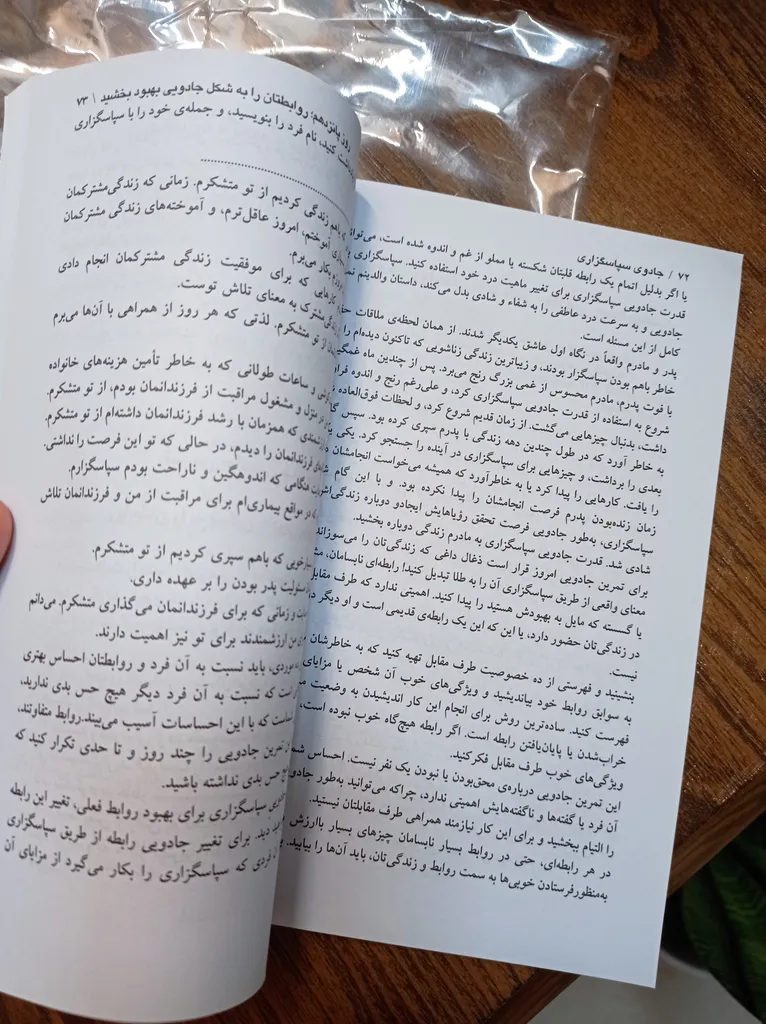 ۷۲ / جادوی سپاسگزاری
یا اگر بدلیل اتمام یک رابطه قلبتان شکسته یا مملو از غم و اندوه شده است، می‌توا
قدرت جادویی سپاسگزاری برای تغییر ماهیت درد خود استفاده کنید. سپاسگزاری
جادویی و به سرعت درد عاطفی را به شفاء و شادی بدل می‌کند، داستان والدینم
کامل از این مسئله است.
پدر و مادرم واقعاً در نگاه اول عاشق یکدیگر شدند. از همان لحظه‌ی ملاقات
خاطر باهم بودن سپاسگزار بودند، و زیباترین زندگی زناشویی که تاکنون دیده‌ام را
با فوت پدرم، مادرم محسوس از غمی بزرگ رنج می‌برد. پس از چندین ماه
شروع به استفاده از قدرت جادویی سپاسگزاری کرد، و علی‌رغم رنج و اندوه
داشت، بدنبال چیزهایی می‌گشت. از زمان قدیم شروع کرد، و لحظات فوق‌العاده
به خاطر آورد که در طول چندین دهه زندگی با پدرم سپری کرده بود. سپس
بعدی را برداشت، و چیزهایی برای سپاسگزاری در آینده را جستجو کرد. یکی
را یافت. کارهایی را پیدا کرد یا به خاطرآورد که همیشه می‌خواست انجامشان
زمان زنده‌بودن پدرم فرصت انجامشان را پیدا نکرده بود. و با این گام
سپاسگزاری، به‌طور جادویی فرصت تحقق رؤیاهایش ایجادو دوباره زندگی‌اش
شادی شد. قدرت جادویی سپاسگزاری به مادرم زندگی دوباره بخشید.
برای تمرین جادویی امروز قرار است ذغال داغی که زندگی‌تان را می‌سوزاند
معنای واقعی از طریق سپاسگزاری آن را به طلا تبدیل کنید! رابطه‌ای نابسامان،
یا گسسته که مایل به بهبودش هستید را پیدا کنید. اهمیتی ندارد که طرف مقابل
در زندگی‌تان حضور دارد، یا این که این یک رابطه‌ی قدیمی است و او دیگر
نیست.
بنشینید و فهرستی از ده خصوصیت طرف مقابل تهیه کنید که به خاطرشان
به سوابق روابط خود بیاندیشید و ویژگی‌های خوب آن شخص یا مزایای
فهرست کنید. ساده‌ترین روش برای انجام این کار اندیشیدن به وضعیت
خراب‌شدن یا پایان‌یافتن رابطه است. اگر رابطه هیچ‌گاه خوب نبوده است،
ویژگی‌های خوب طرف مقابل فکرکنید.
این تمرین جادویی درباره‌ی محق‌بودن یا نبودن یک نفر نیست. احساس
آن فرد یا گفته‌ها و ناگفته‌هایش اهمیتی ندارد، چراکه می‌توانید به‌طور جادو
را التیام ببخشید و برای این کار نیازمند همراهی طرف مقابلتان نیستید.
در هر رابطه‌ای، حتی در روابط بسیار نابسامان چیزهای بسیار باارزش
به‌منظورفرستادن خوبی‌ها به سمت روابط و زندگی‌تان، باید آن‌ها را بیابید.
روز پانزدهم: روابطتان را به شکل جادویی بهبود بخشید | ۷۳
کنید، نام فرد را بنویسید، و جمله‌ی خود را با سپاسگزاری
باهم زندگی کردیم از تو متشکرم. زمانی که زندگی‌مشترکمان
آموختم، امروز عاقل‌ترم، و آموخته‌های زندگی مشترکمان
بکار می‌برم.
کارهایی که برای موفقیت زندگی مشترکمان انجام دادی
مشترک به معنای تلاش توست.
از تو متشکرم. لذتی که هر روز از همراهی با آن‌ها می‌برم
و ساعات طولانی که به خاطر تأمین هزینه‌های خانواده
در منزل و مشغول مراقبت از فرزندانمان بودم، از تو متشکرم.
که همزمان با رشد فرزندانمان داشته‌ام از تو متشکرم.
فرزندانمان را دیدم، در حالی که تو این فرصت را نداشتی.
هنگامی که اندوهگین و ناراحت بودم سپاسگزارم.
در مواقع بیماری‌ام برای مراقبت از من و فرزندانمان تلاش
خوبی که باهم سپری کردیم از تو متشکرم.
مسئولیت پدر بودن را بر عهده داری.
و زمانی که برای فرزندانمان می‌گذاری متشکرم. می‌دانم
من ارزشمندند برای تو نیز اهمیت دارند.
باید نسبت به آن فرد و روابطتان احساس بهتری
است که نسبت به آن فرد دیگر هیچ حس بدی ندارید،
که با این احساسات آسیب می‌بیند.روابط متفاوتند،
تمرین جادویی را چند روز و تا حدی تکرار کنید که
حس بدی نداشته باشید.
سپاسگزاری برای بهبود روابط فعلی، تغییر این رابطه
دید. برای تغییر جادویی رابطه از طریق سپاسگزاری
فردی که سپاسگزاری را بکار می‌گیرد از مزایای آن